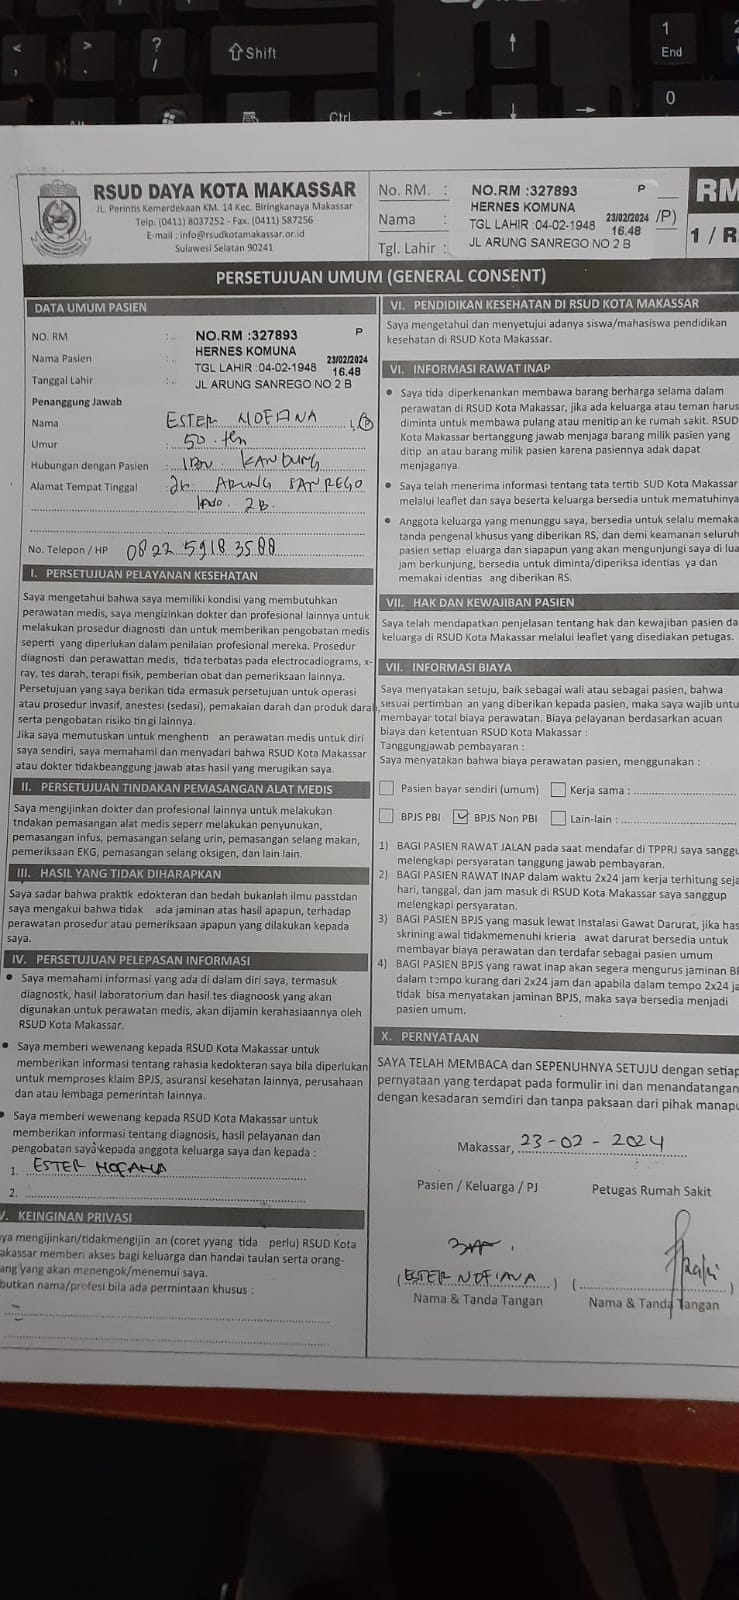 RSUD DAYA KOTA MAKASSAR
JL. Perintis Kemerdekaan KM. 14 Kec. Biringkanaya Makassar
Telp. (0411) 8037252 - Fax. (0411) 587256
E-mail : info@rsudkotamakassar.or.id
Sulawesi Selatan 90241
No. RM. :
Nama :
Tgl. Lahir :
NO.RM :327893 P
HERNES KOMUNA
TGL LAHIR :04-02-1948 23/02/2024 16.48
JL ARUNG SANREGO NO 2 B
/P)
RM
1 / R
PERSETUJUAN UMUM (GENERAL CONSENT)
DATA UMUM PASIEN
NO. RM : NO.RM :327893 P
Nama Pasien : HERNES KOMUNA
Tanggal Lahir : TGL LAHIR :04-02-1948 23/02/2024 16.48
JL ARUNG SANREGO NO 2 B
Penanggung Jawab
Nama : ESTER NOFIANA
Umur : 50 thn
Hubungan dengan Pasien : KANDUNG
Alamat Tempat Tinggal : JL. ARUNG SANREGO
2B.
No. Telepon / HP 0822 5918 3588
I. PERSETUJUAN PELAYANAN KESEHATAN
Saya mengetahui bahwa saya memiliki kondisi yang membutuhkan
perawatan medis, saya mengizinkan dokter dan profesional lainnya untuk
melakukan prosedur diagnosti dan untuk memberikan pengobatan medis
seperti yang diperlukan dalam penilaian profesional mereka. Prosedur
diagnosti dan perawattan medis, tida terbatas pada electrocadiograms, x-
ray, tes darah, terapi fisik, pemberian obat dan pemeriksaan lainnya.
Persetujuan yang saya berikan tida ermasuk persetujuan untuk operasi
atau prosedur invasif, anestesi (sedasi), pemakaian darah dan produk darah,
serta pengobatan risiko tin gi lainnya.
Jika saya memutuskan untuk menghenti an perawatan medis untuk diri
saya sendiri, saya memahami dan menyadari bahwa RSUD Kota Makassar
atau dokter tidakbeanggung jawab atas hasil yang merugikan saya.
II. PERSETUJUAN TINDAKAN PEMASANGAN ALAT MEDIS
Saya mengijinkan dokter dan profesional lainnya untuk melakukan
tndakan pemasangan alat medis seperr melakukan penyunukan,
pemasangan infus, pemasangan selang urin, pemasangan selang makan,
pemeriksaan EKG, pemasangan selang oksigen, dan lain lain.
III. HASIL YANG TIDAK DIHARAPKAN
Saya sadar bahwa praktik edokteran dan bedah bukanlah ilmu passtdan
saya mengakui bahwa tidak ada jaminan atas hasil apapun, terhadap
perawatan prosedur atau pemeriksaan apapun yang dilakukan kepada
saya.
IV. PERSETUJUAN PELEPASAN INFORMASI
• Saya memahami informasi yang ada di dalam diri saya, termasuk
diagnostk, hasil laboratorium dan hasil tes diagnoosk yang akan
digunakan untuk perawatan medis, akan dijamin kerahasiaannya oleh
RSUD Kota Makassar.
• Saya memberi wewenang kepada RSUD Kota Makassar untuk
memberikan informasi tentang rahasia kedokteran saya bila diperlukan
untuk memproses klaim BPJS, asuransi kesehatan lainnya, perusahaan
dan atau lembaga pemerintah lainnya.
• Saya memberi wewenang kepada RSUD Kota Makassar untuk
memberikan informasi tentang diagnosis, hasil pelayanan dan
pengobatan saya kepada anggota keluarga saya dan kepada :
1. ESTER
2.
V. KEINGINAN PRIVASI
ya mengijinkan/tidakmengijin an (coret yyang tida perlu) RSUD Kota
akassar memberi akses bagi keluarga dan handai taulan serta orang-
ang yang akan menengok/menemui saya.
butkan nama/profesi bila ada permintaan khusus :
VI. PENDIDIKAN KESEHATAN DI RSUD KOTA MAKASSAR
Saya mengetahui dan menyetujui adanya siswa/mahasiswa pendidikan
kesehatan di RSUD Kota Makassar.
VI. INFORMASI RAWAT INAP
• Saya tida diperkenankan membawa barang berharga selama dalam
perawatan di RSUD Kota Makassar, jika ada keluarga atau teman harus
diminta untuk membawa pulang atau menitip an ke rumah sakit. RSUD
Kota Makassar bertanggung jawab menjaga barang milik pasien yang
ditip an atau barang milik pasien karena pasiennya adak dapat
menjaganya.
• Saya telah menerima informasi tentang tata tertib SUD Kota Makassar
melalui leaflet dan saya beserta keluarga bersedia untuk mematuhinya
• Anggota keluarga yang menunggu saya, bersedia untuk selalu memaka
tanda pengenal khusus yang diberikan RS, dan demi keamanan seluruh
pasien setiap eluarga dan siapapun yang akan mengunjungi saya di lua
jam berkunjung, bersedia untuk diminta/diperiksa identias ya dan
memakai identias ang diberikan RS.
VII. HAK DAN KEWAJIBAN PASIEN
Saya telah mendapatkan penjelasan tentang hak dan kewajiban pasien da
keluarga di RSUD Kota Makassar melalui leaflet yang disediakan petugas.
VII. INFORMASI BIAYA
Saya menyatakan setuju, baik sebagai wali atau sebagai pasien, bahwa
sesuai pertimban an yang diberikan kepada pasien, maka saya wajib untu
membayar total biaya perawatan. Biaya pelayanan berdasarkan acuan
biaya dan ketentuan RSUD Kota Makassar :
Tanggungjawab pembayaran :
Saya menyatakan bahwa biaya perawatan pasien, menggunakan :
Pasien bayar sendiri (umum) Kerja sama :
BPJS PBI BPJS Non PBI Lain-lain :
1) BAGI PASIEN RAWAT JALAN pada saat mendafar di TPPRJ saya sanggu
melengkapi persyaratan tanggung jawab pembayaran.
2) BAGI PASIEN RAWAT INAP dalam waktu 2x24 jam kerja terhitung seja
hari, tanggal, dan jam masuk di RSUD Kota Makassar saya sanggup
melengkapi persyaratan.
3) BAGI PASIEN BPJS yang masuk lewat Instalasi Gawat Darurat, jika has
skrining awal tidakmemenuhi krieria awat darurat bersedia untuk
membayar biaya perawatan dan terdafar sebagai pasien umum
4) BAGI PASIEN BPJS yang rawat inap akan segera mengurus jaminan B
dalam tempo kurang dari 2x24 jam dan apabila dalam tempo 2x24 ja
tidak bisa menyatakan jaminan BPJS, maka saya bersedia menjadi
pasien umum.
X. PERNYATAAN
SAYA TELAH MEMBACA dan SEPENUHNYA SETUJU dengan setiap
pernyataan yang terdapat pada formulir ini dan menandatangan
dengan kesadaran semdiri dan tanpa paksaan dari pihak manapu
Makassar, 23-02-2024
Pasien / Keluarga / PJ Petugas Rumah Sakit
(ESTER NOFIANA) ( )
Nama & Tanda Tangan Nama & Tanda Tangan
< , > . ? / Shift
Ctrl
1 End
0